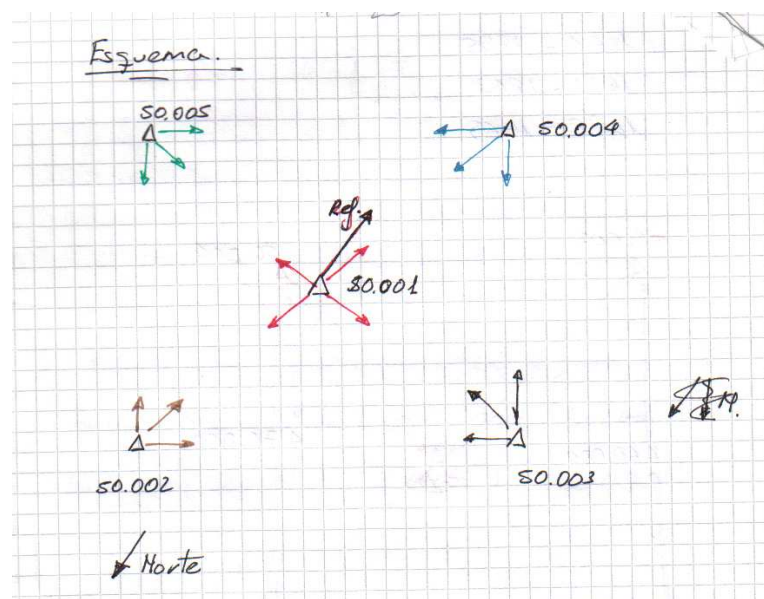 Esquema.
50.005
50.004
Ref.
50.001
50.002
50.003
Norte